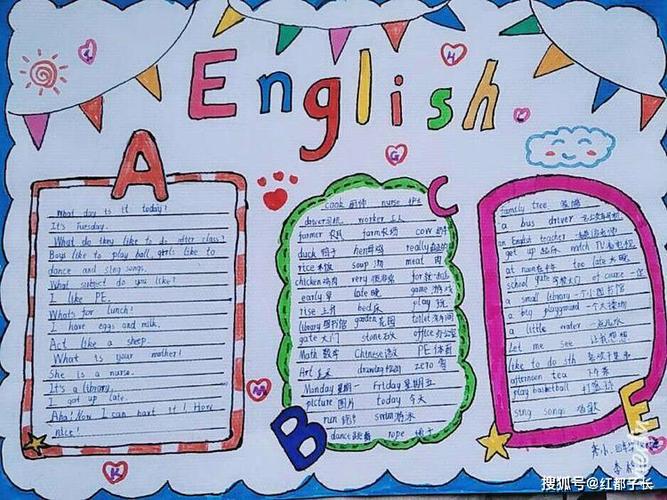 English
A
What day is it today?
It's Tuesday.
What do they like to do after class?
Boys like to play ball, girls like to
dance and sing songs.
What subject do you like?
I like PE.
Whats for lunch?
I have eggs and milk.
Act like a sheep.
What is your mother!
She is a nurse.
It's a library.
I got up late.
Aha! Now I can hart it! How
nice!
B
C
cook 厨师 nurse 护士
driver司机 worker 工人
farmer 农民 farm农场 cow 奶牛
duck 鸭子 hen母鸡 really
rice米饭 soup 汤 meat 肉
chicken鸡肉 very很非常 for
early早 late 晚 game 游戏
rise 上升 bed床 play 玩
library图书馆 garden花园 toilet
gate 大门 stone石头 office办公室
Math 数学 Chinese语文 PE 体育
Art 美术 drawing zero 零
Monday 星期一 Friday 星期五
picture 图片 today 今天
run 跑步 swim游泳
dance跳舞 rope 绳子
D
E
family tree 家谱
a bus driver
an English teacher
get up 起床 watch TV看电视
at noon在中午 too late太晚
school gate学校大门 of course 一定
a small library 一个小图书馆
a big playground 一个大操场
a little water 一点儿水
Let me see 让我想想
like to do sth
afternoon tea 下午茶
play basketball 打篮球
sing songs 唱歌
搜狐号@红都子长